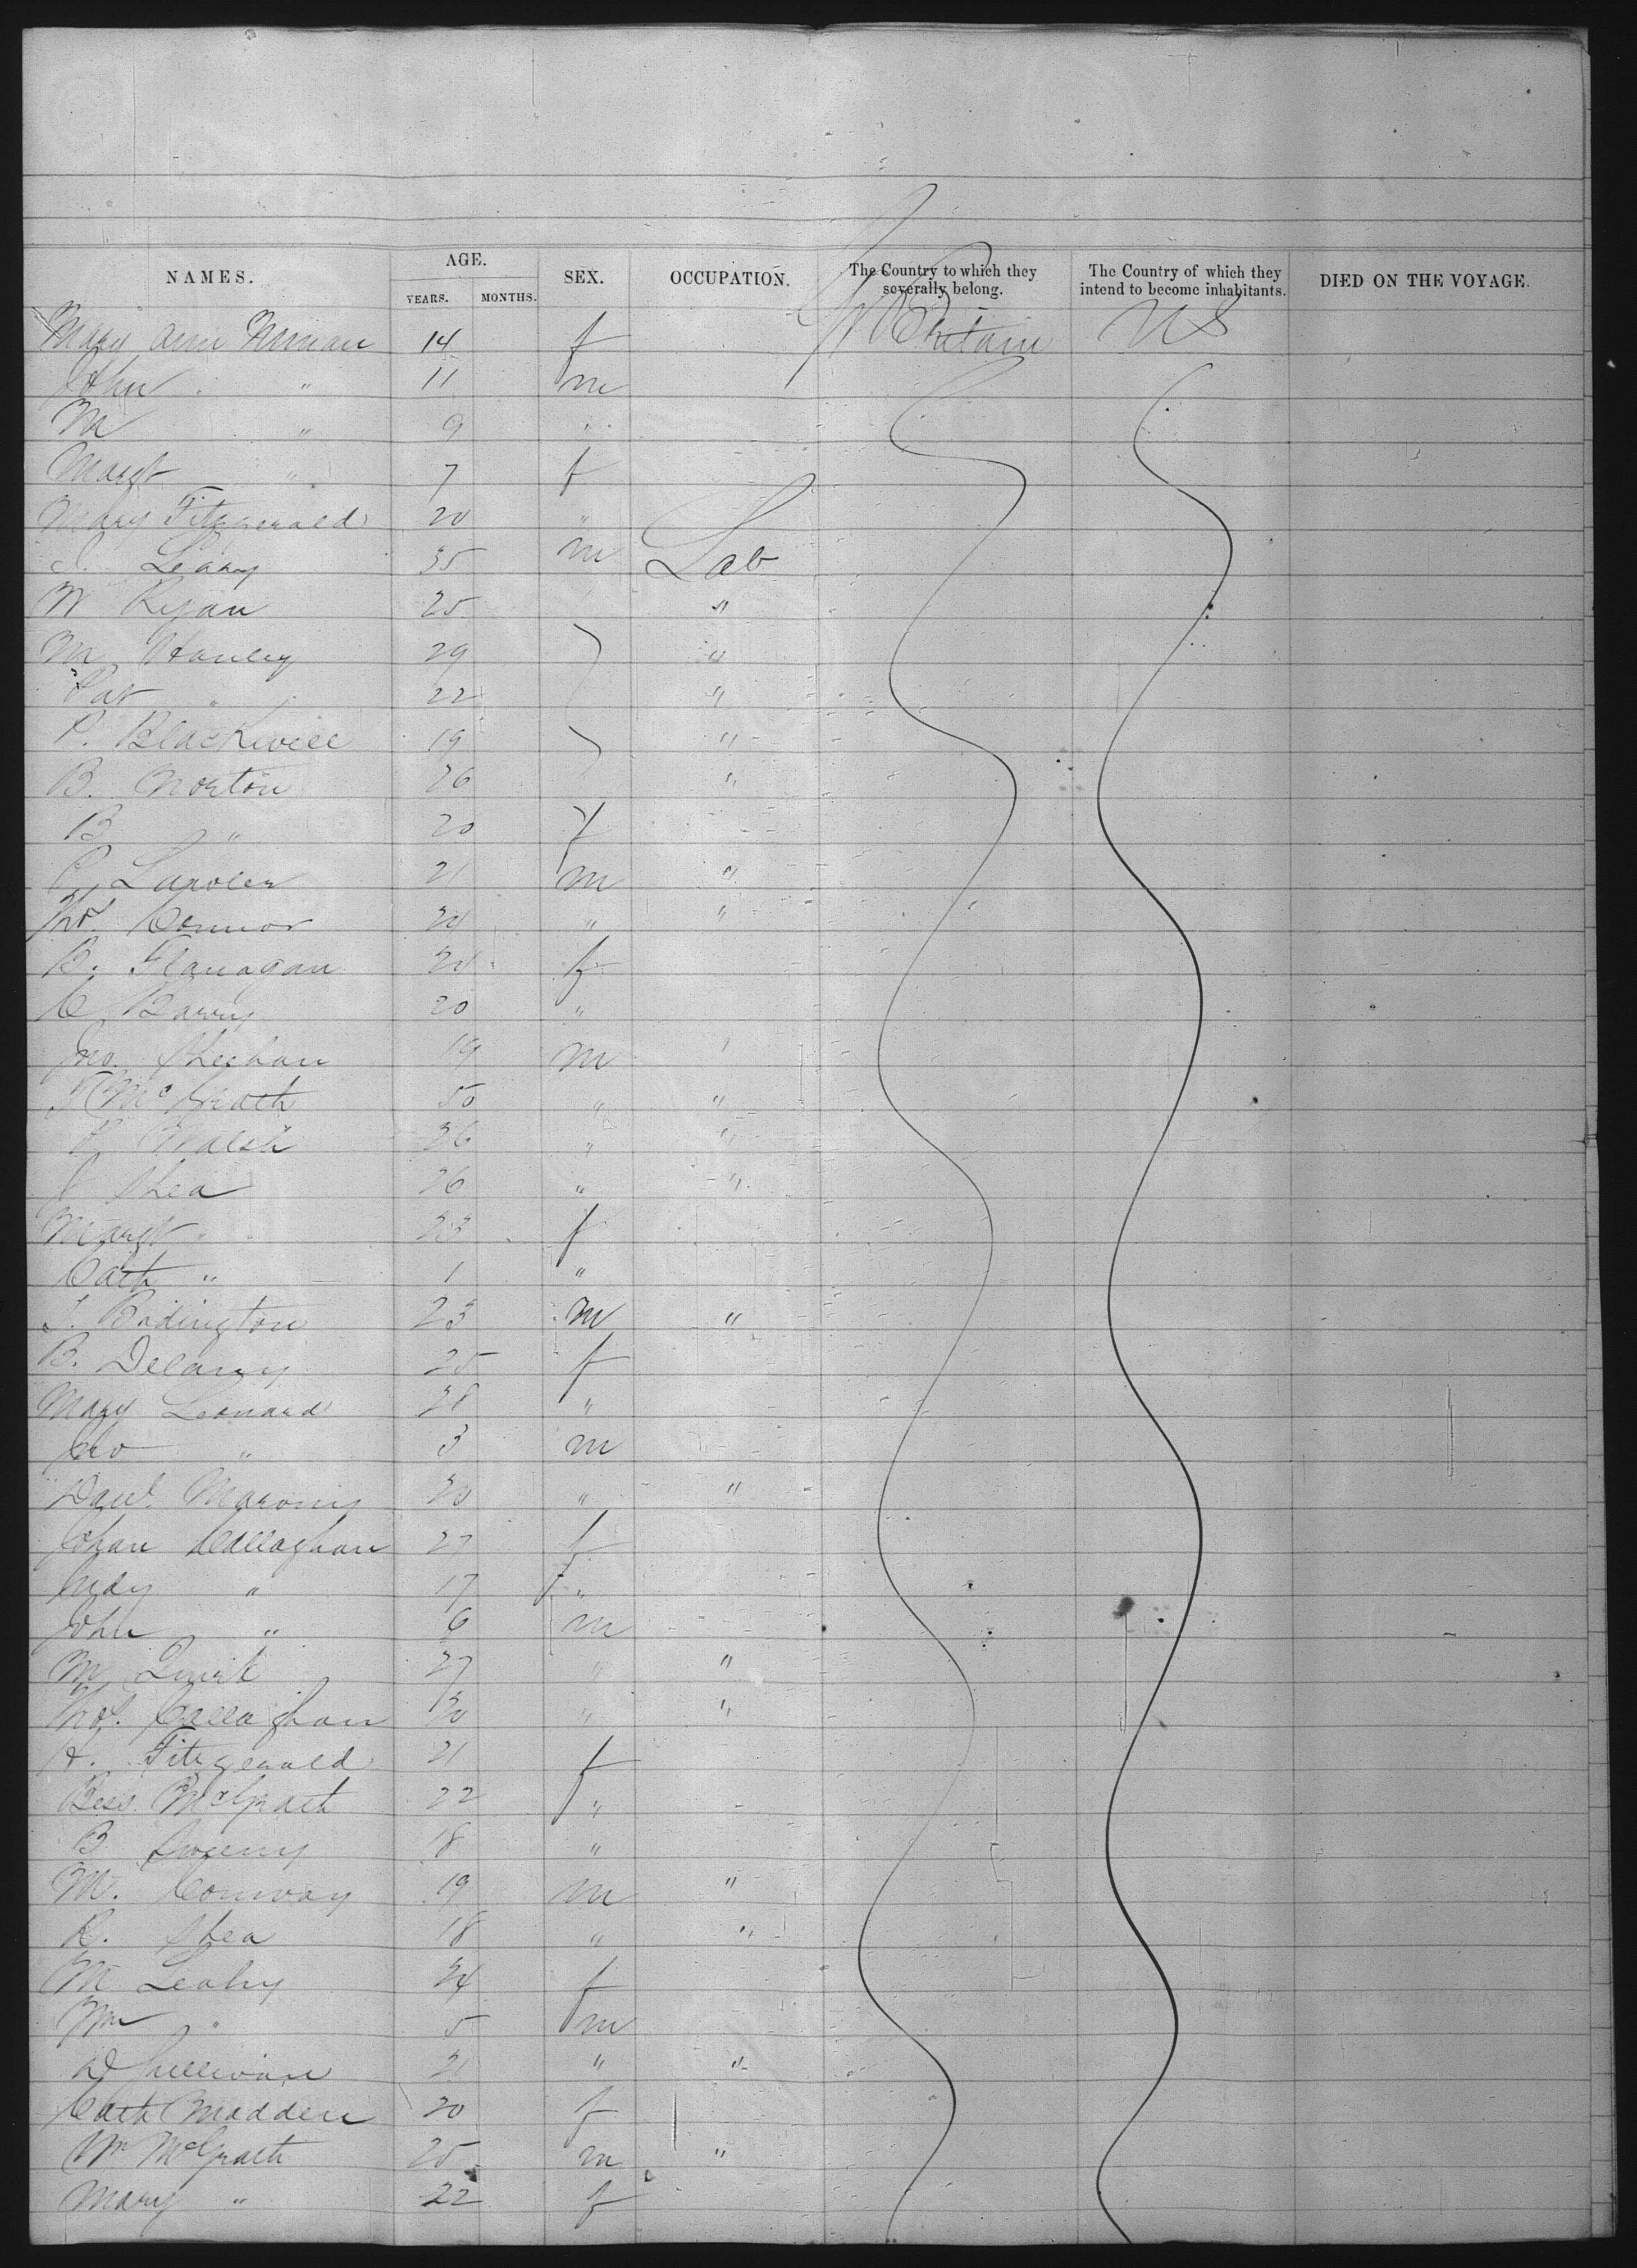 NAMES. AGE. SEX. OCCUPATION. The Country to which they severally belong. The Country of which they intend to become inhabitants. DIED ON THE VOYAGE.
YEARS. MONTHS.
Mary Ann 14 f Gt Britain US
John " 11 m
M " 9 "
Margt " 7 f
Mary Fitzgerald 20 "
J. Leary 35 m Lab
W Ryan 25 "
M Hanley 29 "
Pat " 22 "
P. Blackwell 19 "
B. Norton 26 "
B " 20 f
21 m "
Thos. Connor 20 " "
B. Flanagan 20 f
C Barry 20 "
Jno. Sheehan 19 m "
McGrath 50 " "
P Walsh 26 " "
J Shea 26 " "
Margt " 23 f
Cath " 1 "
T. Bodington 23 m "
B. Delany 25 f
Mary Leonard 28 "
" 3 m
Danl. Marony 20 " "
Johan Callaghan 27 f
Judy " 17 "
John " 6 m
M Quirk 27 " "
Thos. Callaghan 30 " "
Fitzgerald 21 f
Bess McGrath 22 "
B Sweeny 18 "
M. Conway 19 m "
R. Shea 18 " "
M Leahy 24 f
Wm " 5 m
D Sullivan 21 " "
Cath Madden 20 f
Wm McGrath 25 m "
Mary " 22 f